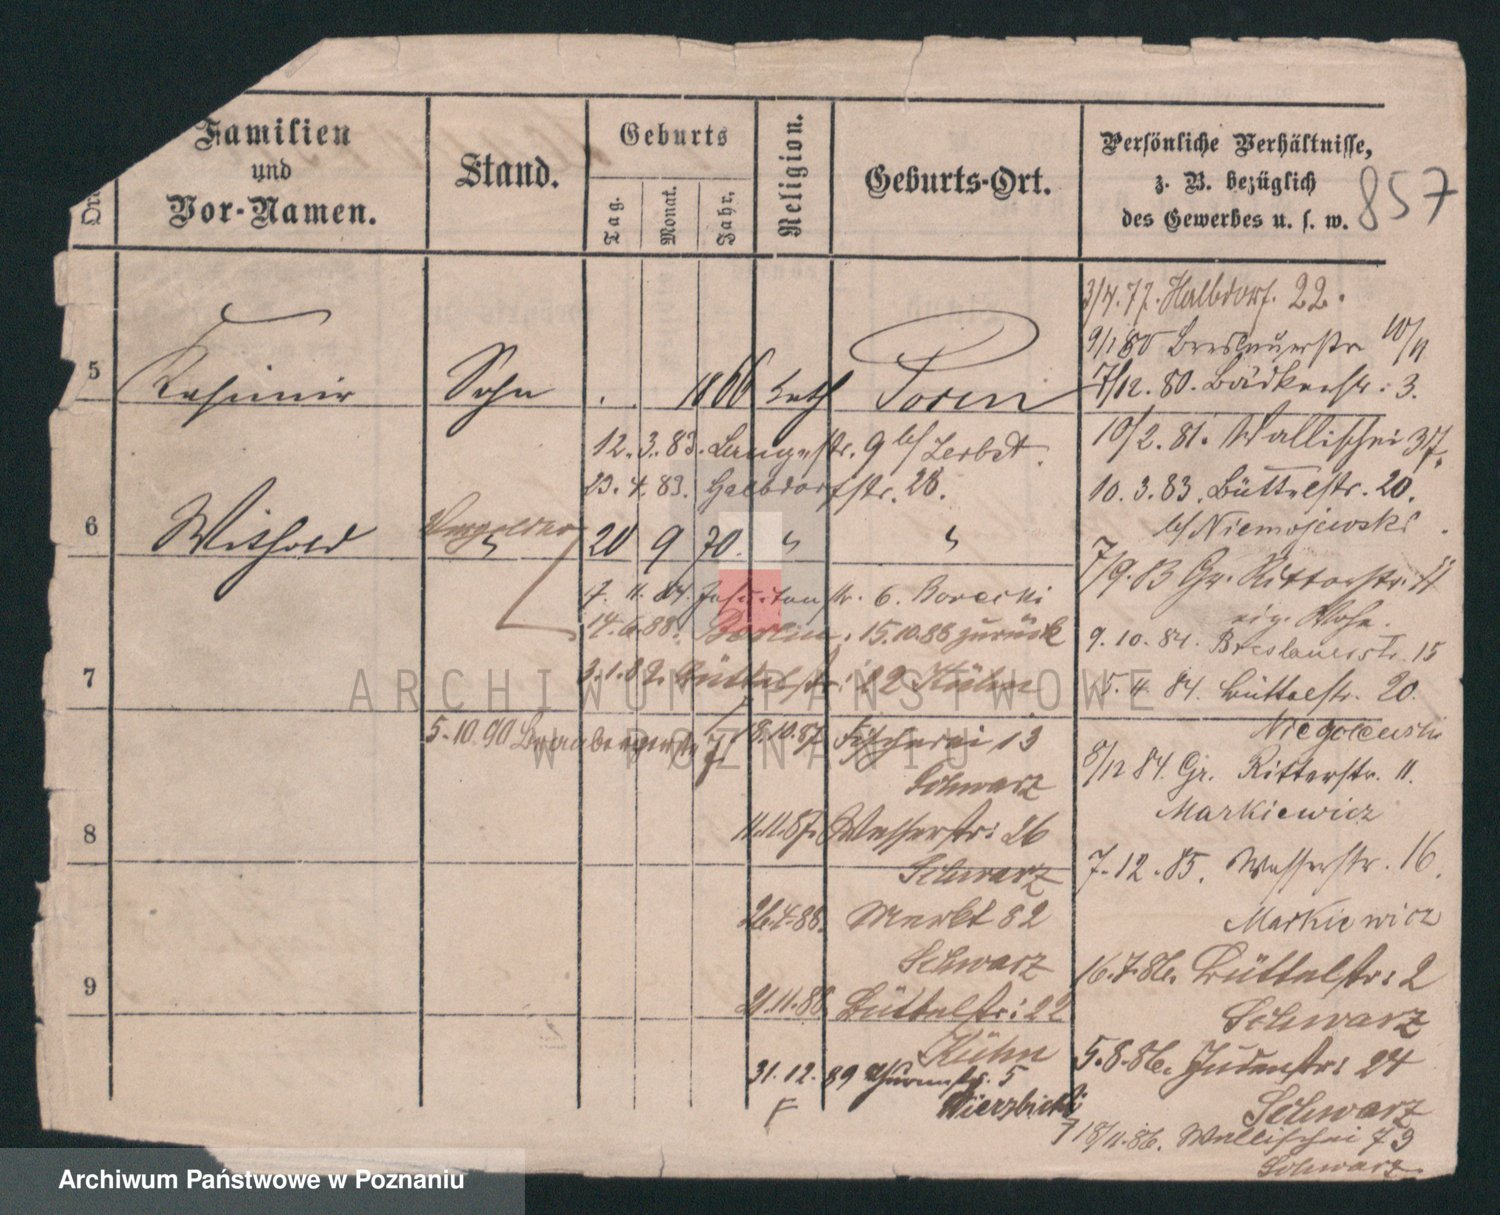 Familien
und
Vor-Namen.
Stand.
Geburts
Tag.
Monat.
Jahr.
Religion.
Geburts-Ort.
Persönliche Verhältnisse,
z. B. bezüglich
des Gewerbes u. s. w.
857
3/4. 77. Halbdorf. 22.
9/1 80 Breslauerstr 10/11
5 Kasimir Sohn . . 1866 kath Posen
7/12. 80. Bäckerstr. 3.
10/2. 81. Wallischei 37.
12. 3. 83. Langestr. 9 b/ Zerbst.
23. 4. 83. Halbdorfstr. 28.
10. 3. 83. Büttelstr. 20.
b/ Niemojewski
6 Withold 20 9 70. " "
7/9. 83 Gr. Ritterstr. 11
7. 11. 84. Jesuitenstr. 6. Borecki
14. 6. 88. Berlin. 15.10.88 zurück
9. 10. 84. Breslauerstr. 15
7
3. 1. 89. Büttelstr: 22 Kühn
5. 4. 84. Büttelstr. 20.
Niegolewski
5. 10. 90 Brombergerstr 7/
18.10.87 Fischerei 13
Schwarz
8/12 84. Gr. Ritterstr. 11.
Markiewicz
8
11.11.87. Wasserstr: 26
Schwarz
7. 12. 85. Wasserstr. 16.
Markiewicz
26.4.88. Markt 82
Schwarz
16. 7. 86. Büttelstr: 2
Schwarz
9
21.11.88 Büttelstr: 22
Kühn
5. 8. 86. Judenstr: 24
Schwarz
31. 12. 89 Thurmstr. 5
Wierzbicki
18/11. 86. Wallischei 73
Schwarz
ARCHIWUM PAŃSTWOWE
W POZNANIU
Archiwum Państwowe w Poznaniu